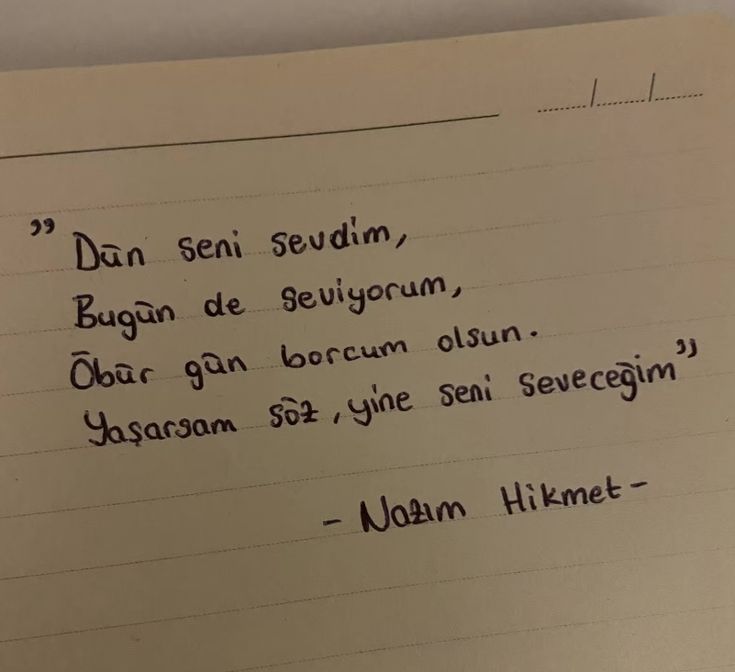 " Dün seni sevdim,
Bugün de seviyorum,
Öbür gün borcum olsun.
Yaşarsam söz, yine seni seveceğim"
- Nazım Hikmet -